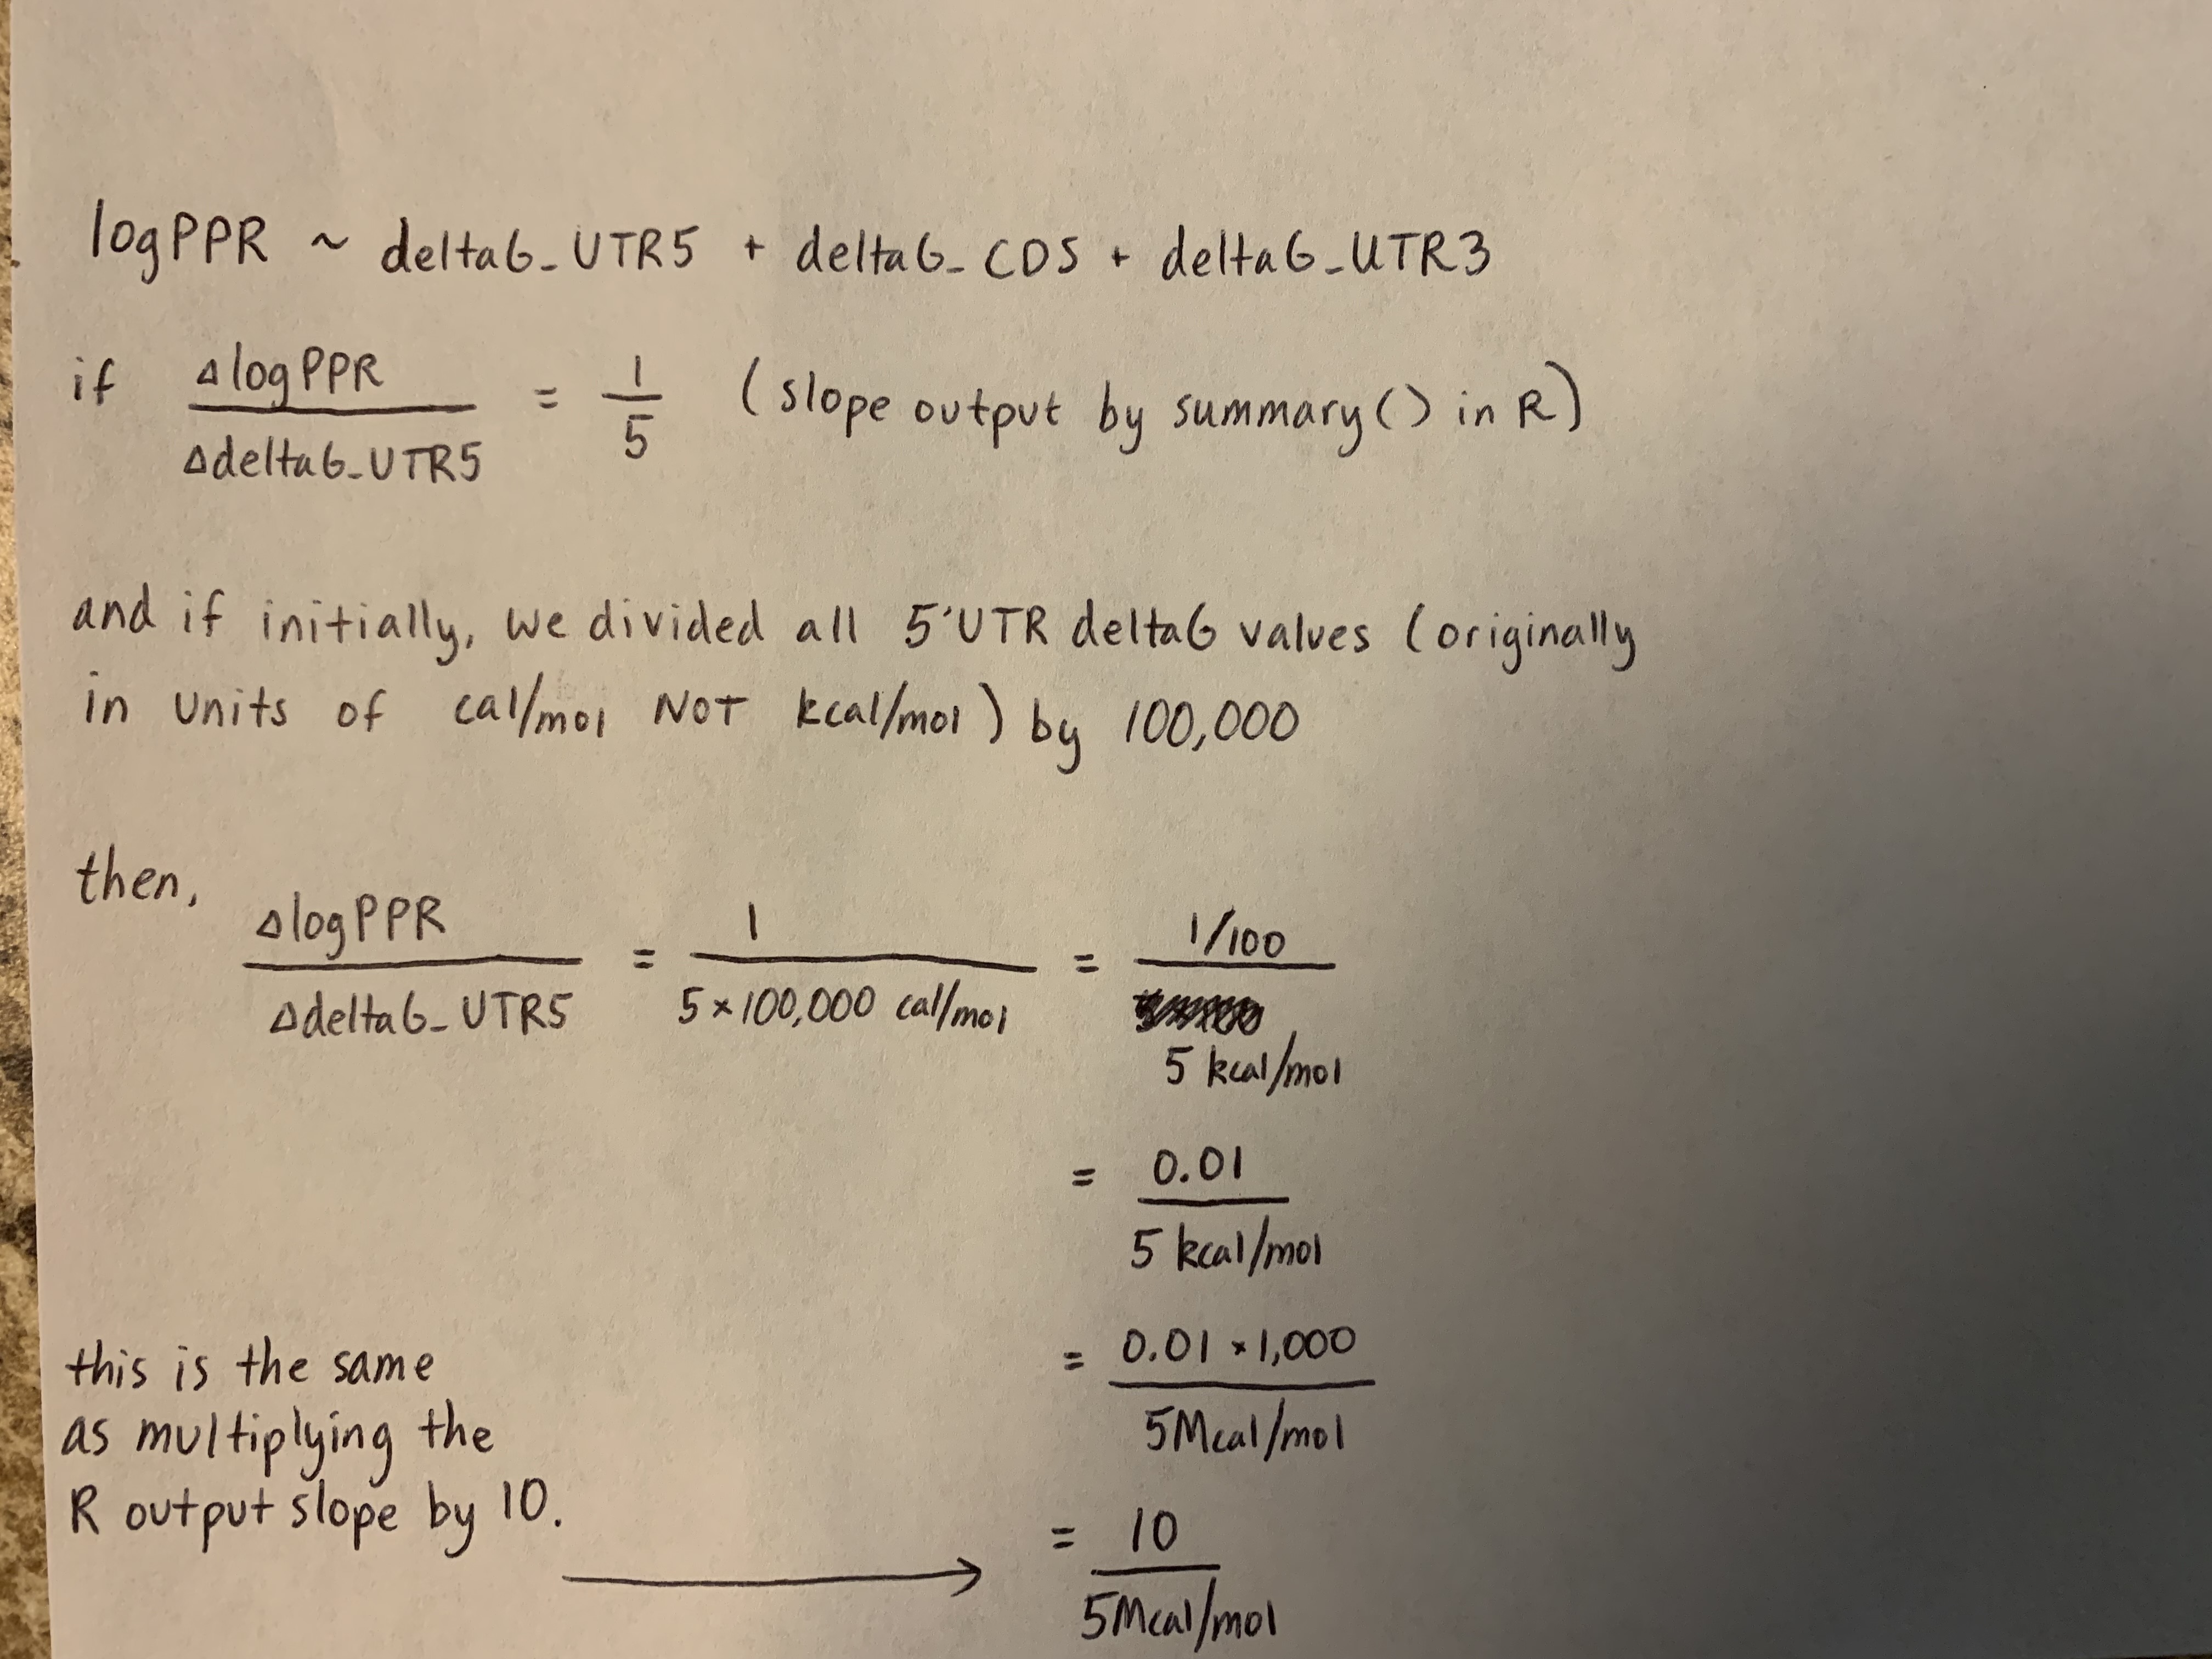 logPPR ~ deltaG_UTR5 + deltaG_CDS + deltaG_UTR3
if ΔlogPPR / ΔdeltaG_UTR5 = 1/5 (slope output by summary() in R)
and if initially, we divided all 5'UTR deltaG values (originally
in units of cal/mol NOT kcal/mol) by 100,000
then, ΔlogPPR / ΔdeltaG_UTR5 = 1 / 5×100,000 cal/mol = 1/100 / 5 kcal/mol
= 0.01 / 5 kcal/mol
= 0.01 × 1,000 / 5Mcal/mol
this is the same
as multiplying the
R output slope by 10.
→ = 10 / 5Mcal/mol